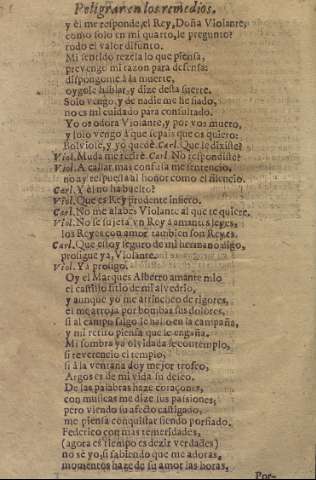 Peligrar en los remedios,
y él me responde, el Rey, Doña Violante,
como solo en mi quarto, le pregunto?
todo el valor difunto.
Mi sentido rezela lo que piensa,
prevengo mi razon para defensa:
dispongome à la muerte,
oygole hablar, y dize desta suerte.
Solo vengo, y de nadie me he fiado,
no es mi cuidado para consultado.
Yo os adoro Violante, y por vos muero,
y solo vengo à que sepais que os quiero:
Bolviose, y yo quedè. Carl. Que le dixiste?
Viol. Muda me retirè. Carl. No respondiste?
Viol. A callar mas confusa me sentencio,
no ay respuesta al honor como el silencio.
Carl. Y él no ha buelto?
Viol. Que es Rey prudente infiero.
Carl. No me alabes Violante al que te quiere.
Viol. No se sujeta vn Rey à amantes leyes,
los Reyes con amor tambien son Reyes.
Carl. Que estoy seguro de mi hermano digo,
prosigue ya, Violante.
Viol. Ya prosigo.
Oy el Marques Alberto amante
el castillo sitio de mi alvedrio,
y aunque yo me atrinchero de rigores,
el me arroja por bombas sus dolores,
si al campo salgo le hallo en la campaña,
y mi retiro piensa que le engaña.
Mi sombra ya olvidada le contemplo,
si reverencio el templo,
si à la ventana doy mejor trofeo,
Argos es de mi vida su deseo.
De las palabras haze coraçones,
con musicas me dize sus passiones;
pero viendo su afecto castigado,
me piensa conquistar siendo porfiado.
Federico con mas temeridades,
(agora es tiempo es dezir verdades)
no sè yo, si sabiendo que me adoras,
momentos haze de su amor las horas,
Por-